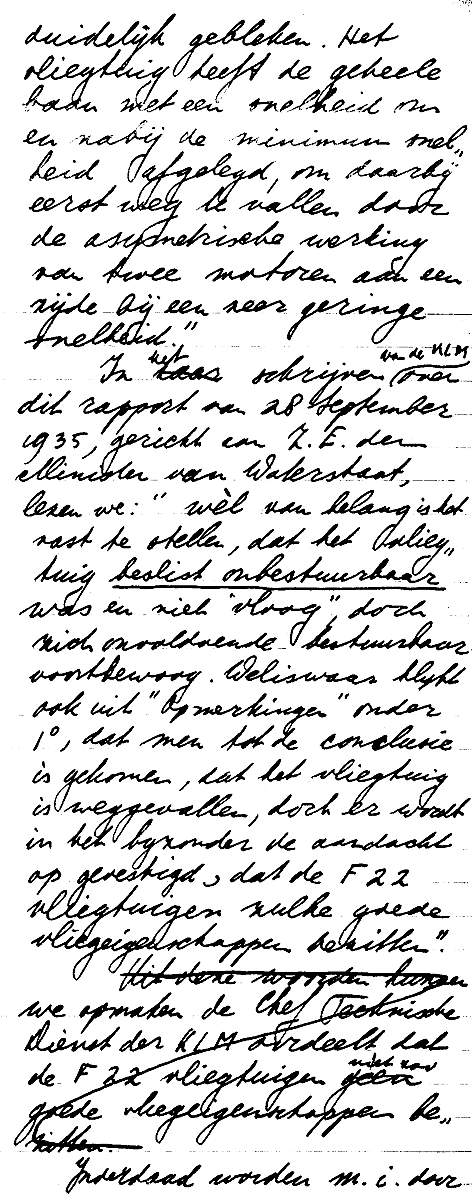 duidelijk gebleken. Het
vliegtuig heeft de geheele
baan met een snelheid om
en nabij de minimum snel„
heid afgelegd, om daarbij
eerst weg te vallen door
de asymetrische werking
van twee motoren aan een
zijde bij een zeer geringe
snelheid."
In het haar schrijven van de KLM over
dit rapport van 28 September
1935, gericht aan Z.E. den
Minister van Waterstaat,
lezen we: "wèl van belang is het
vast te stellen, dat het vlieg„
tuig beslist onbestuurbaar
was en niet "vloog", doch
zich onvoldoende bestuurbaar
voortbewoog. Weliswaar blijkt
ook uit "Opmerkingen" onder
1°, dat men tot de conclusie
is gekomen, dat het vliegtuig
is weggevallen, doch er wordt
in het byzonder de aandacht
op gevestigd, dat de F 22
vliegtuigen zulke goede
vliegeigenschappen bezitten".
Uit deze woorden kunnen
we opmaken de Chef Technische
Dienst der KLM oordeelt dat
de F 22 vliegtuigen geen niet zoo
goede vliegeigenschappen be„
zitten.
Inderdaad worden m.i. door